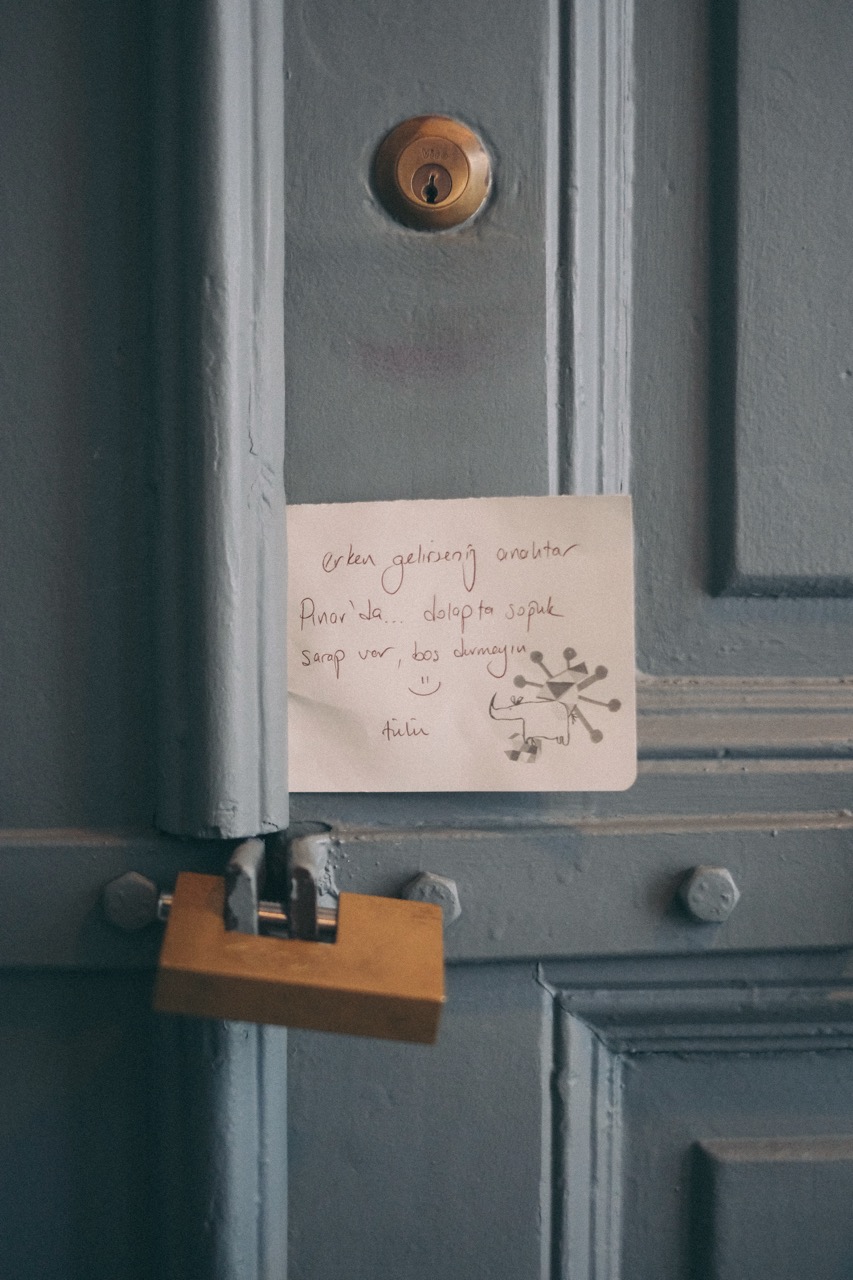 erken gelirseniz anahtar
Pınar'da... dolapta soğuk
şarap var, boş durmayın
tülü